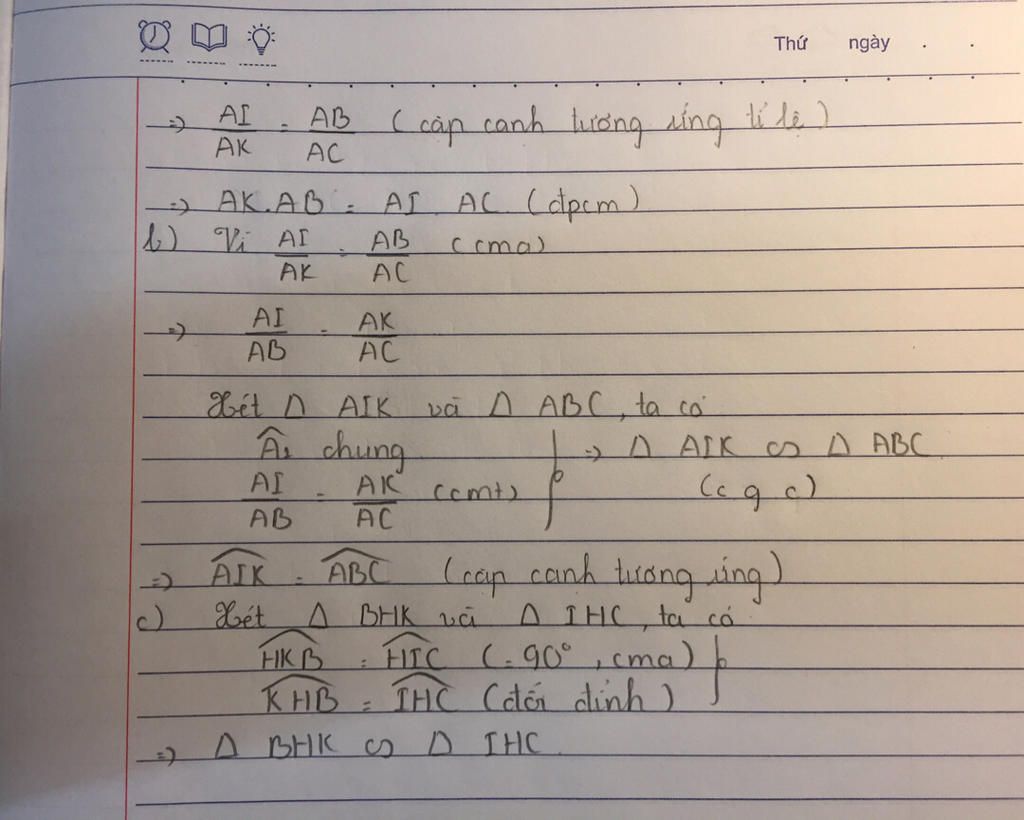 Thứ ngày . .
=> AI/AK = AB/AC (cặp cạnh tương ứng tỉ lệ)
=> AK.AB = AI.AC (đpcm)
b) Vì AI/AK = AB/AC (cma)
=> AI/AB = AK/AC
Xét Δ AIK và Δ ABC, ta có
Â₁ chung } => Δ AIK ∽ Δ ABC
AI/AB = AK/AC (cmt) (c g c)
=> \widehat{AIK} = \widehat{ABC} (cặp cạnh tương ứng)
c) Xét Δ BHK và Δ IHC, ta có
\widehat{HKB} = \widehat{HIC} (=90°, cma) }
\widehat{KHB} = \widehat{IHC} (đối đỉnh)
=> Δ BHK ∽ Δ IHC.